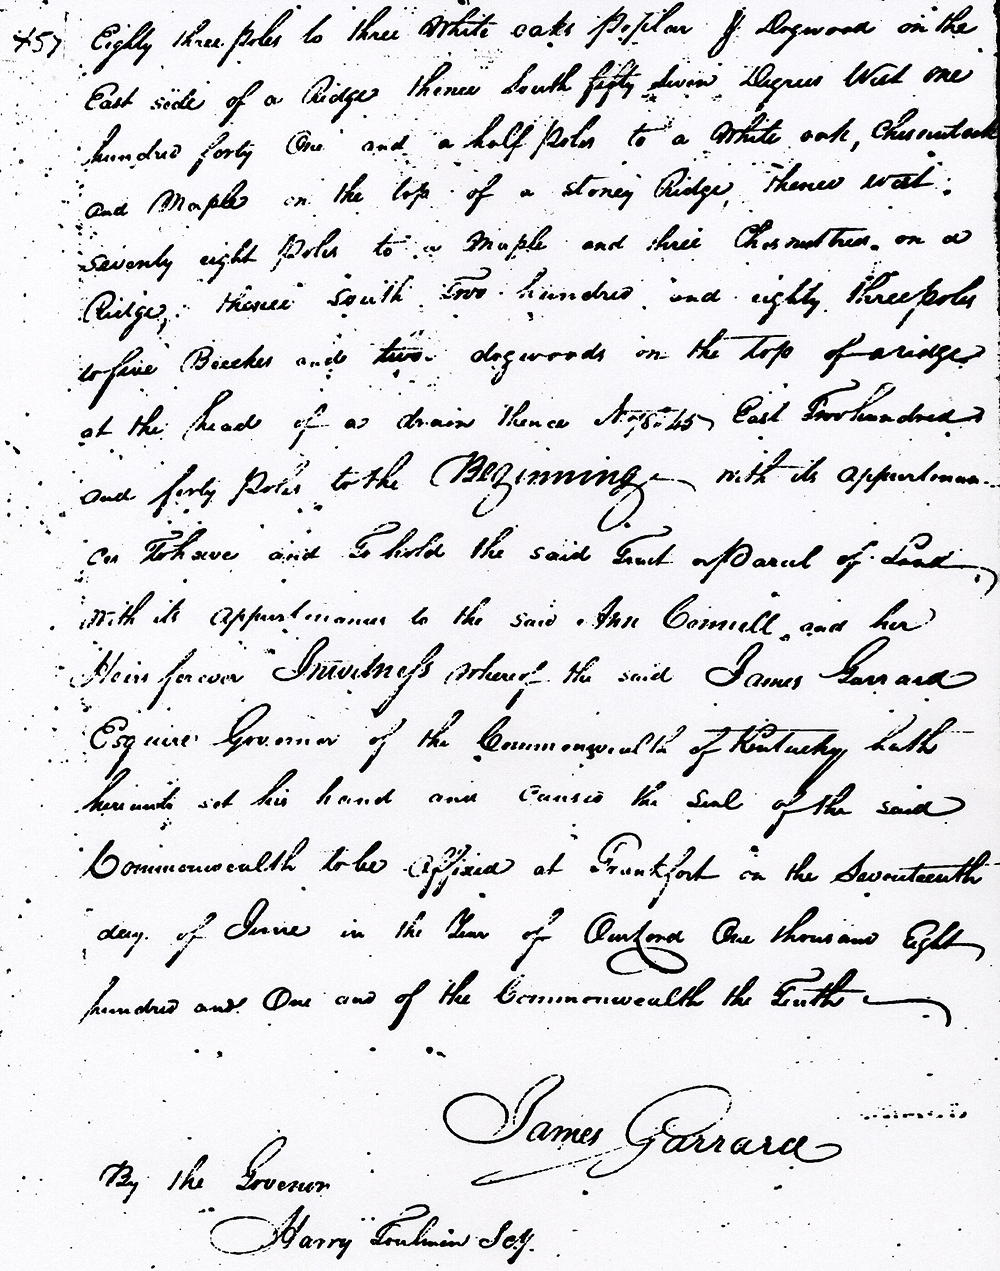 457
Eighty three poles to three White oaks Poplar & Dogwood on the
East side of a Ridge thence South fifty Seven Degrees West one
hundred forty One and a half Poles to a White oak, Chesnut oak
and Maple on the top of a stoney Ridge, thence west
Seventy eight Poles to a Maple and three Chesnuttrees on a
Ridge, thence South Two hundred and eighty three poles
to five Beeches and two dogwoods on the top of a ridge
at the head of a drain thence 45 East Two hundred
and forty Poles to the Beginning with its appurtenan-
ces To have and To hold the said Tract or Parcel of Land
with its appurtenances to the said Ann Connell and her
Heirs forever In witness whereof the said James Garrard
Esquire Governor of the Commonwealth of Kentucky hath
hereunto set his hand and caused the Seal of the said
Commonwealth to be Affixed at Frankfort on the Seventeenth
day of June in the Year of Our Lord One thousand Eight
hundred and One and of the Commonwealth the Tenth
James Garrard
By the Govenor
Harry Toulmin Scy.